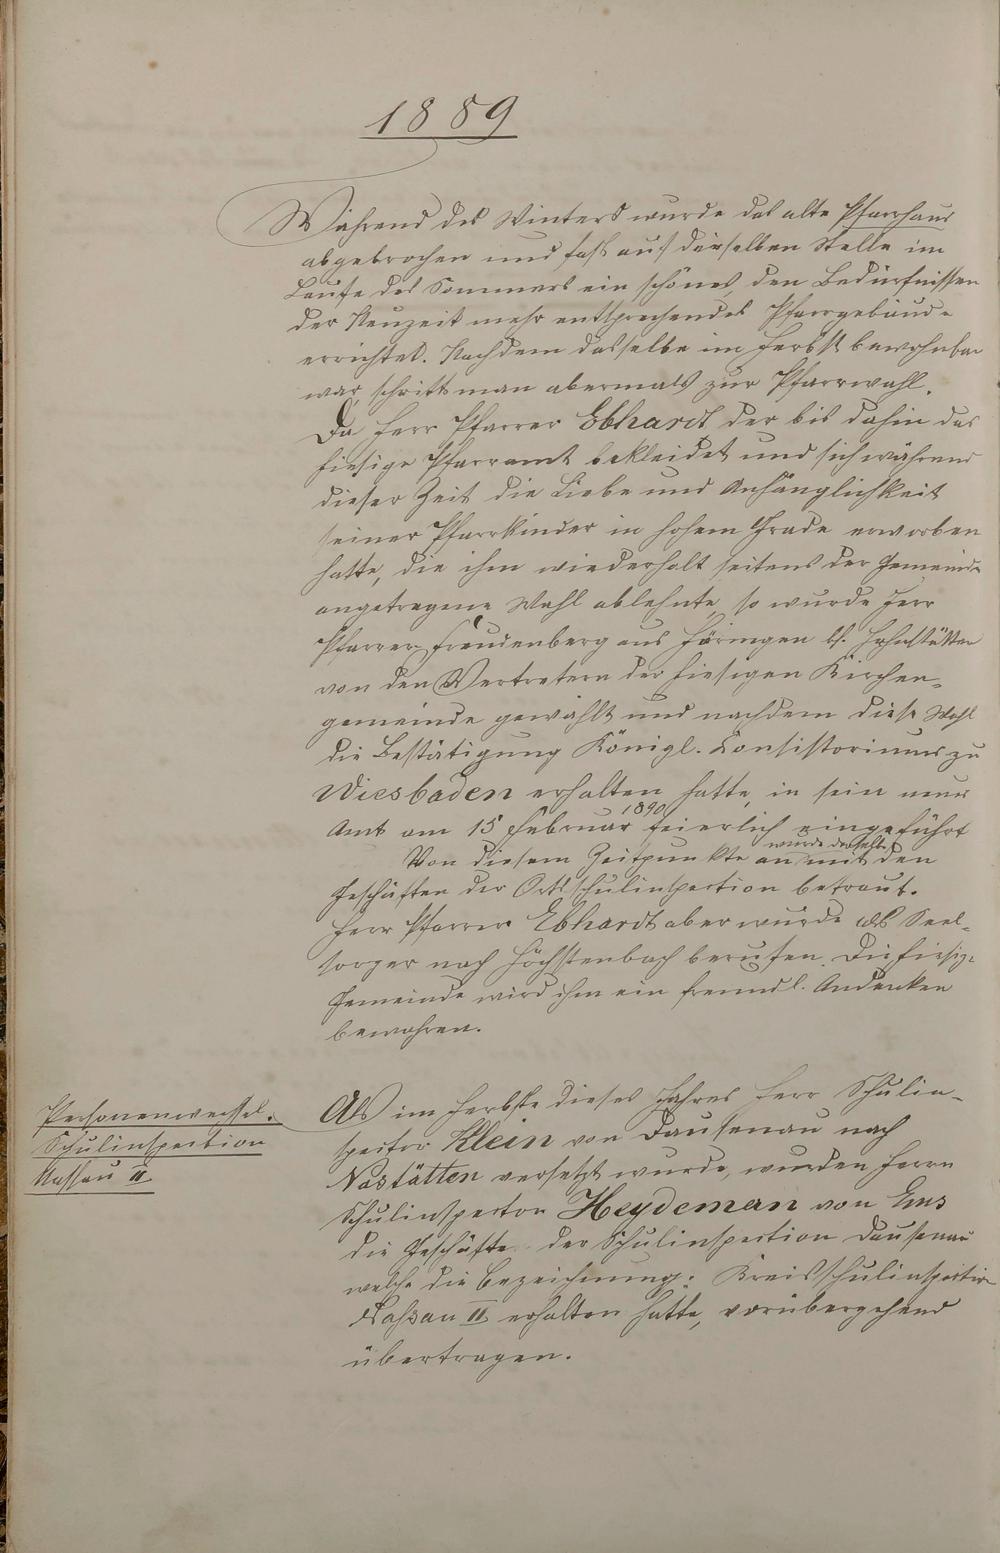 1889
Während des Winters wurde das alte Pfarrhaus
abgebrochen und fast auf derselben Stelle im
Laufe des Sommers ein schönes, den Bedürfnissen
der Neuzeit mehr entsprechendes Pfarrgebäude
errichtet. Nachdem dasselbe im Herbst bewohnbar
war, schritt man abermals zur Pfarrwahl.
Da Herr Pfarrer Ebhardt der bis dahin das
hiesige Pfarramt bekleidet und sich während
dieser Zeit die Liebe und Anhänglichkeit
seiner Pfarrkinder in hohem Grade erworben
hatte, die ihm wiederholt seitens der Gemeinde
angetragene Wahl ablehnte, so wurde Herr
Pfarrer Freudenberg aus
von den Vertretern der hiesigen Kirchen-
gemeinde gewählt und nachdem diese Wahl
die Bestätigung Königl. Konsistoriums zu
Wiesbaden erhalten hatte, in sein neues
Amt am 15 Februar 1890 feierlich eingeführt
Von diesem Zeitpunkte an wurde derselbe mit den
Geschäften der Ortsschulinspection betraut.
Herr Pfarrer Ebhardt aber wurde als Seel-
sorger nach Höchstenbach berufen. Die hiesige
Gemeinde wird ihm ein freundl. Andenken
bewahren.
Personenwechsel.
Schulinspection
Nassau II
Als im Herbste dieses Jahres Herr Schulin-
spector Klein von Dausenau nach
Nastätten versetzt wurde, wurden Herrn
Schulinspector Heydeman von Ems
die Geschäfte der Schulinspection Dausenau
welche die Bezeichnung: Kreisschulinspection
Nassau II erhalten hatte, vorübergehend
übertragen.